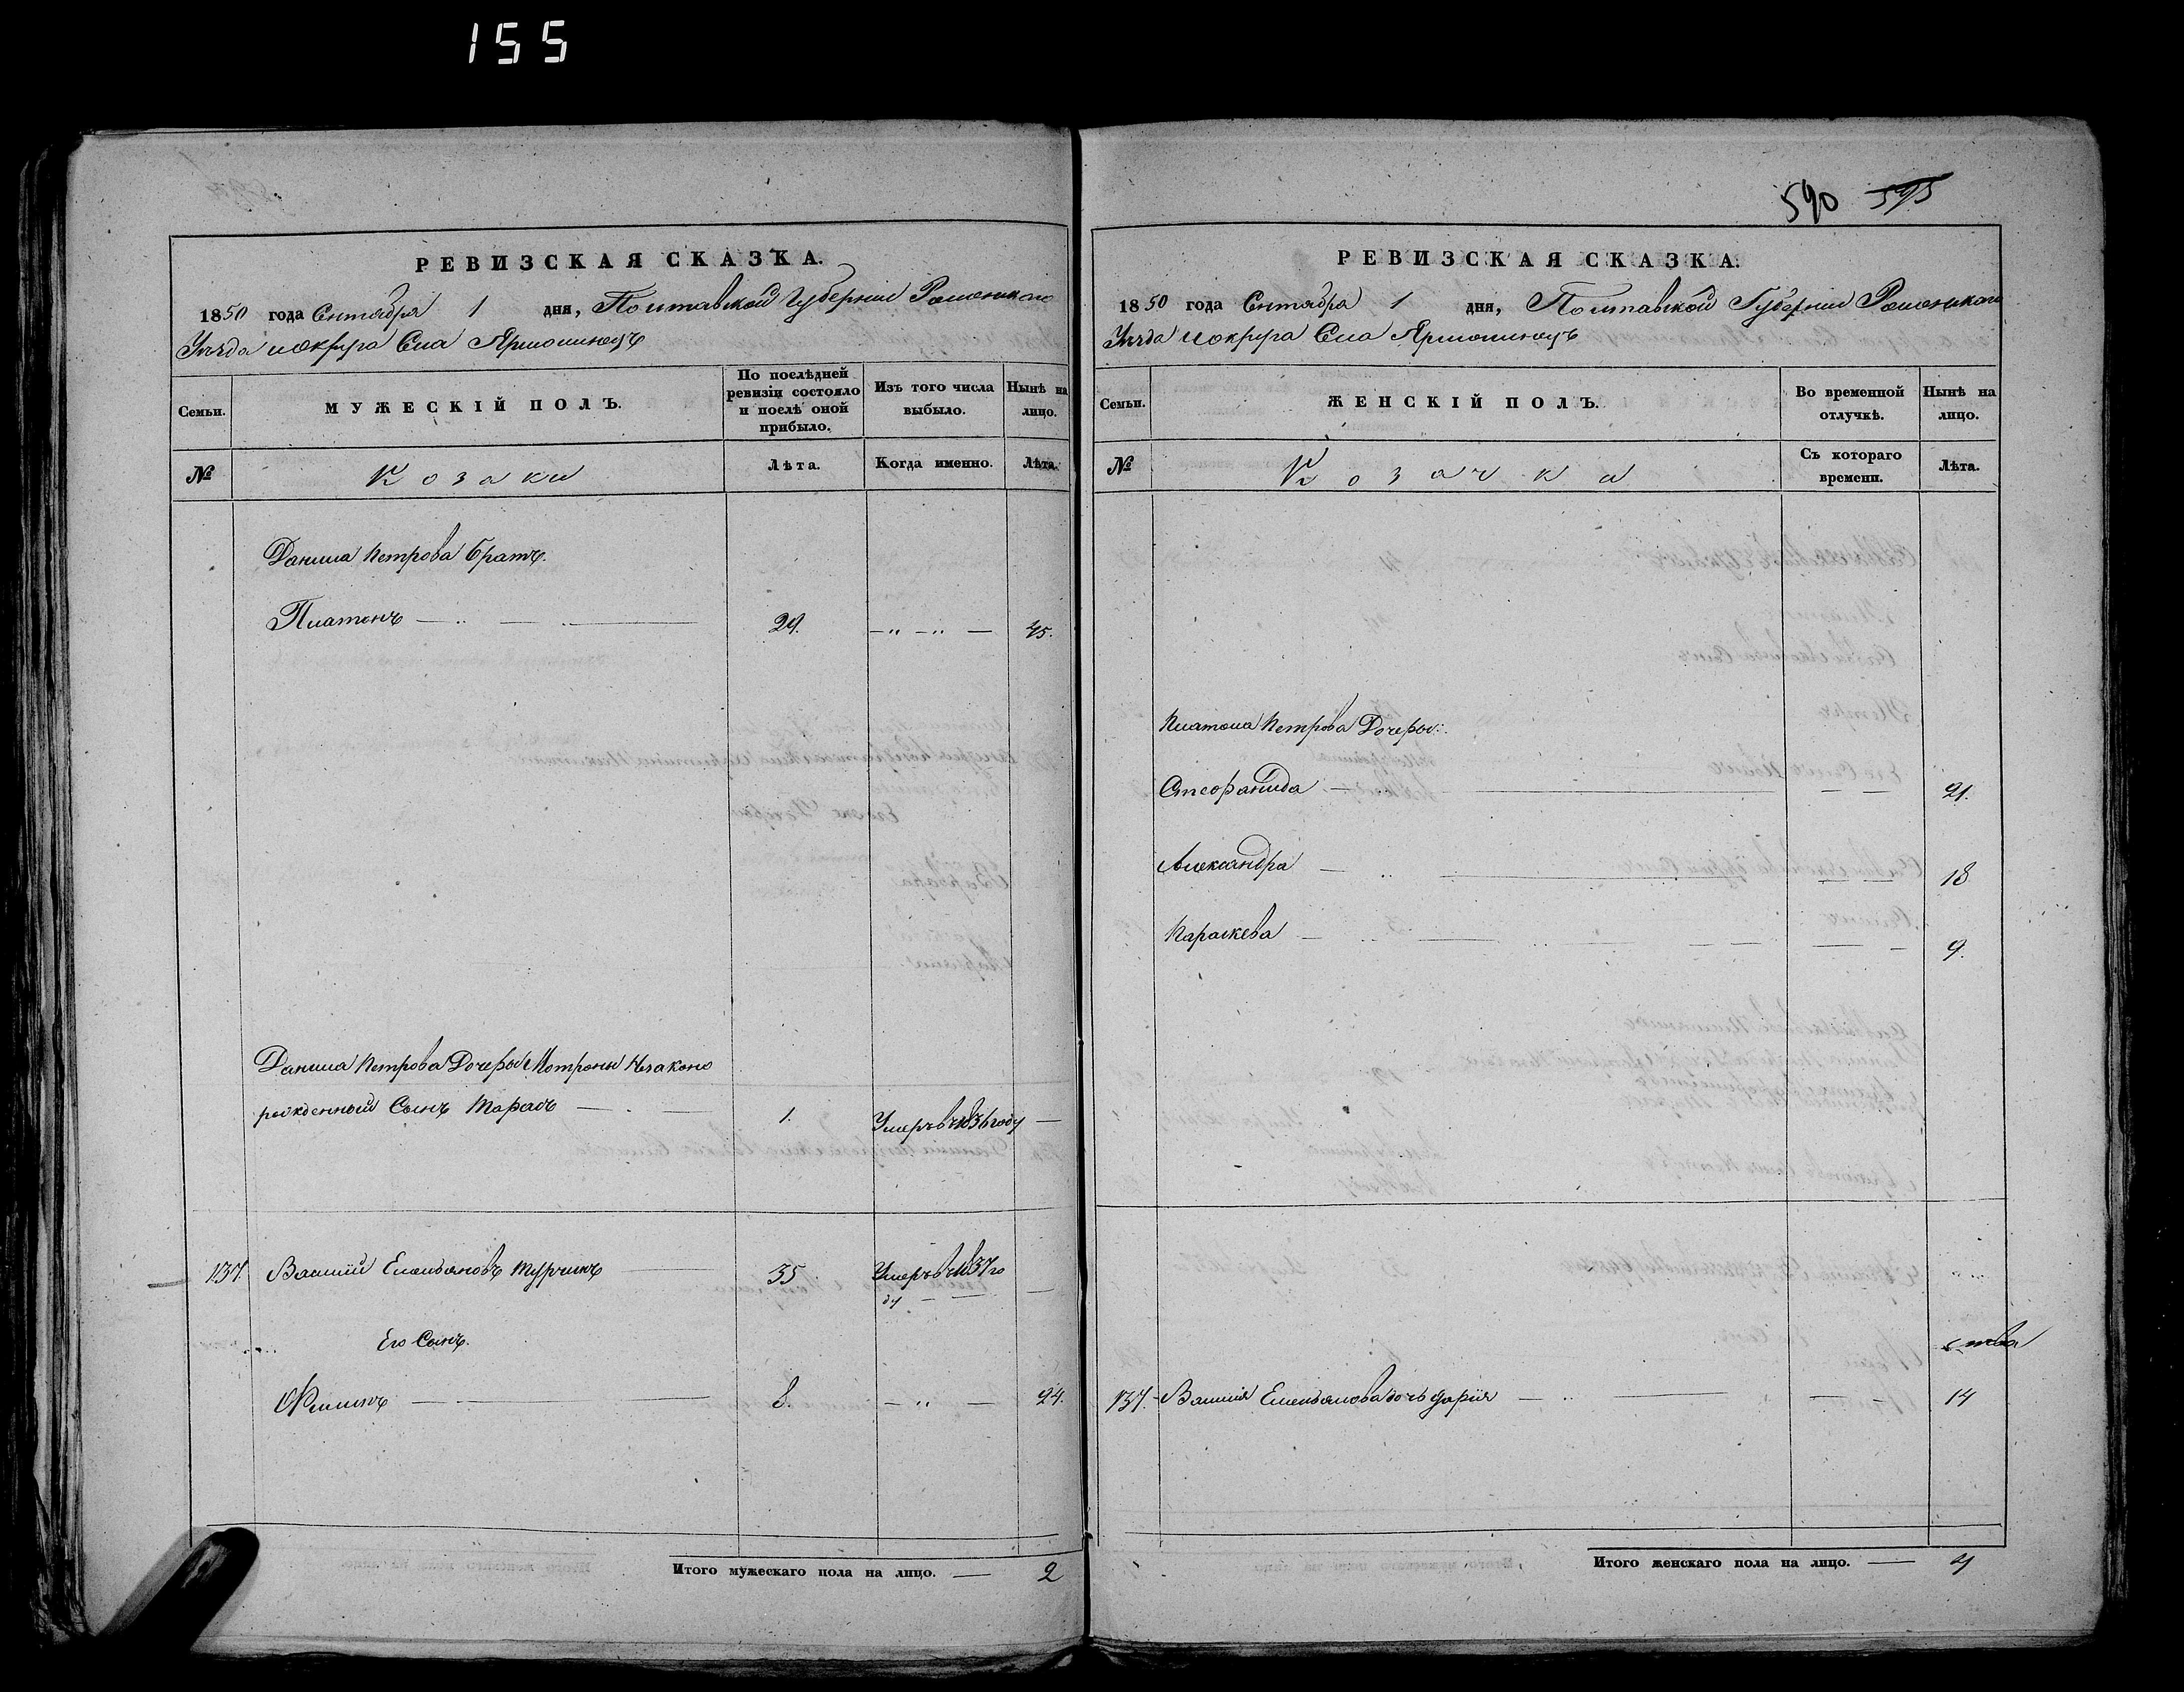 155
РЕВИЗСКАЯ СКАЗКА.
1850 года Сентября 1 дня, Полтавской Губернии Роменскаго
Уезда и округа Села Ярмолинец
Семьи.
МУЖЕСКІЙ ПОЛЪ.
По послѣдней ревизіи состояло и послѣ оной прибыло.
Изъ того числа выбыло.
Нынѣ на лицо.
№
Козаки
Лѣта.
Когда именно.
Лѣта.
Данила Петрова братъ.
Платонъ — 29. — 45.
Данила Петрова Дочеры Мотроны Незаконо
рожденный Сынъ Тарасъ — 1. Умеръ в 1836 году —
137. Василий Емельяновъ Турчинъ 35 Умеръ в 1837 го
ду — —
Его Сынъ.
Филипъ — 8. — 24.
Итого мужескаго пола на лицо. — 2
590 595
РЕВИЗСКАЯ СКАЗКА.
1850 года Сентября 1 дня, Полтавской Губернии Роменскаго
Уезда и округа Села Ярмолинец
Семьи.
ЖЕНСКІЙ ПОЛЪ.
Во временной отлучкѣ.
Нынѣ на лицо.
№
Козачки
Съ котораго времени.
Лѣта.
Платона Петрова Дочеры:
Стефанида — 21.
Александра — 18
Параскева — 9.
137. Василия Емельянова дочь Дария — 14
Итого женскаго пола на лицо. — 4